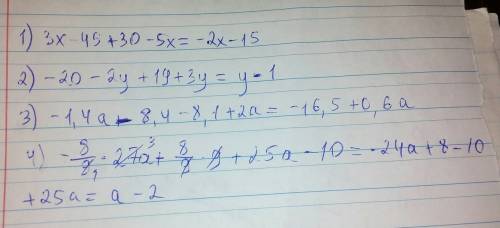 1) 3x - 45 + 30 - 5x = -2x - 15
2) -20 - 2y + 19 + 3y = y - 1
3) -1,4a - 8,4 - 8,1 + 2a = -16,5 + 0,6a
4) -8/9₁ · 27a³ + 8/9 · 9 + 25a - 10 = -24a + 8 - 10
+ 25a = a - 2